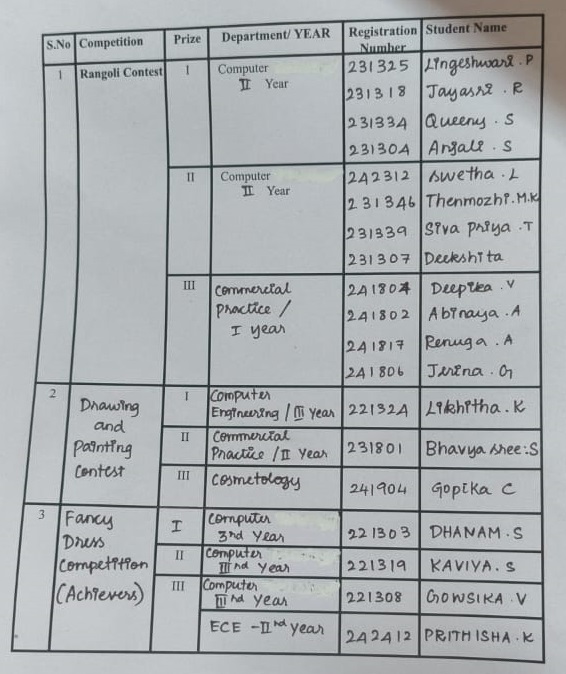 S.No Competition Prize Department/ YEAR Registration Number Student Name
1 Rangoli Contest I Computer II Year 231325 Lingeshwari . P
231318 Jayasri . R
231334 Queeny . S
231304 Anjali . S
II Computer II Year 242312 Swetha . L
231346 Thenmozhi.M.K
231339 Siva priya .T
231307 Deekshita
III Commercial Practice / I year 241804 Deepika .V
241802 Abinaya . A
241817 Renuga . A
241806 Jerina . G
2 Drawing and Painting Contest I Computer Engineering / III Year 221324 Likhitha . K
II Commercial Practice / II Year 231801 Bhavya shee.S
III Cosmetology 241904 Gopika C
3 Fancy Dress Competition (Achievers) I Computer 3rd Year 221303 DHANAM . S
II Computer III nd Year 221319 KAVIYA . S
III Computer III nd Year 221308 GOWSIKA . V
ECE - II nd year 242412 PRITHISHA . K